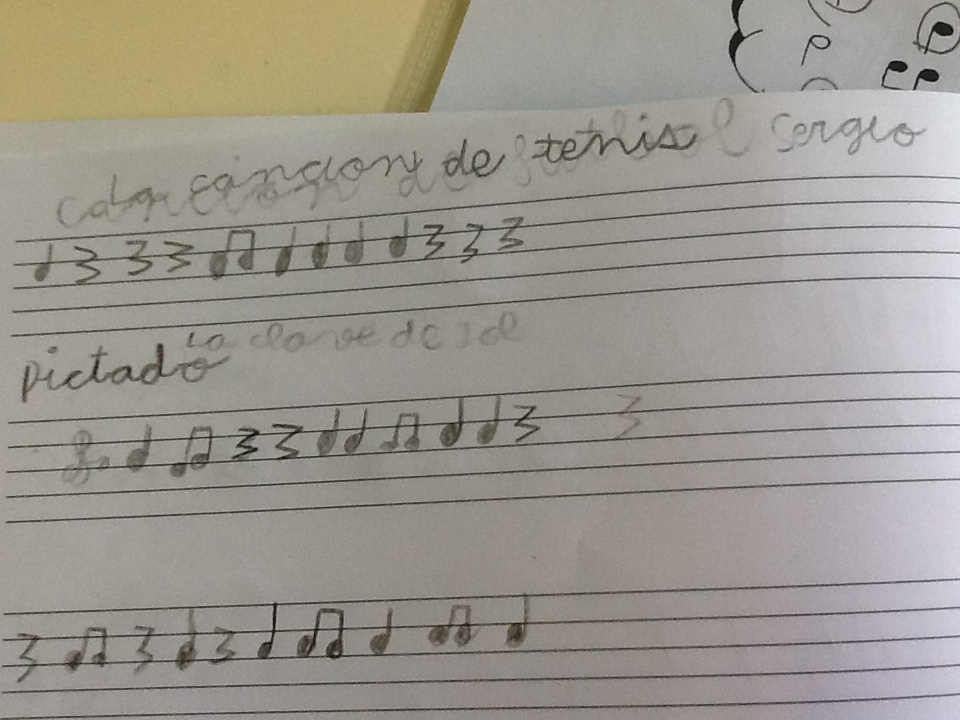 La canción de tenis Sergio
La clave de sol
Dictado